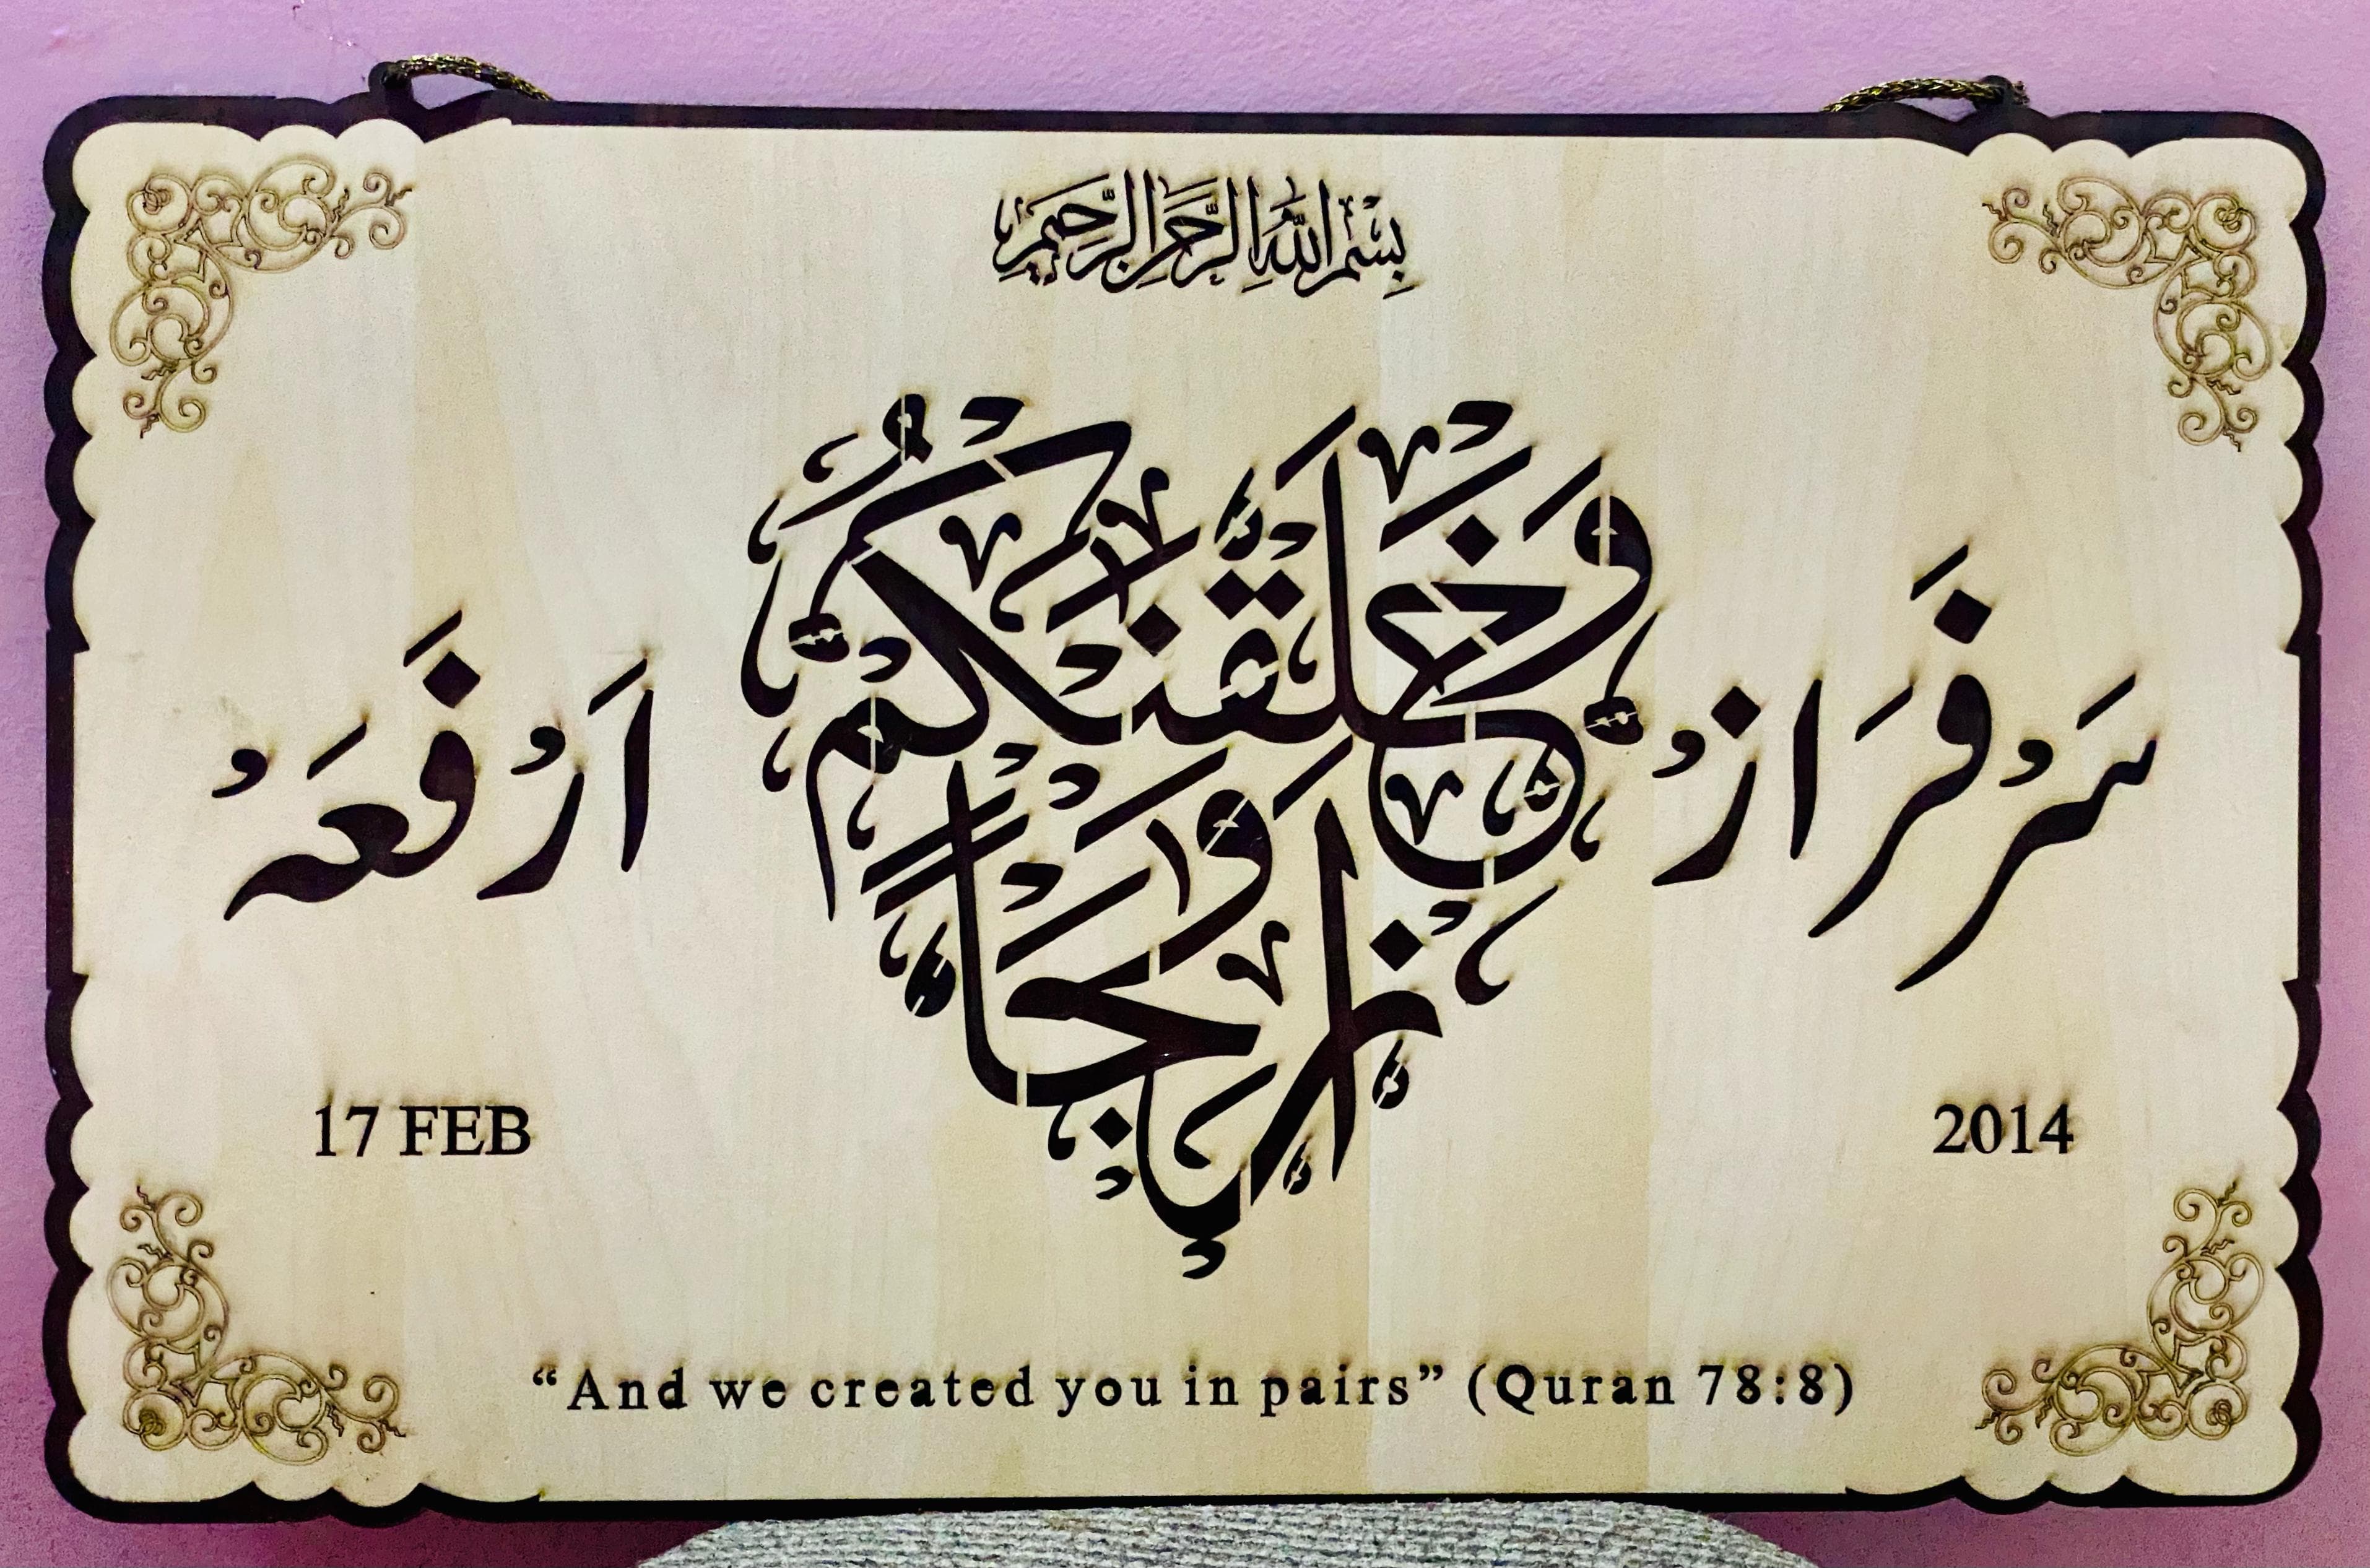 بِسْمِ اللهِ الرَّحْمٰنِ الرَّحِيْمِ
وَخَلَقْنٰكُمْ اَزْوَاجًا
سَرْفَرَازْ اَرْفَعَہْ
17 FEB 2014
“And we created you in pairs” (Quran 78:8)